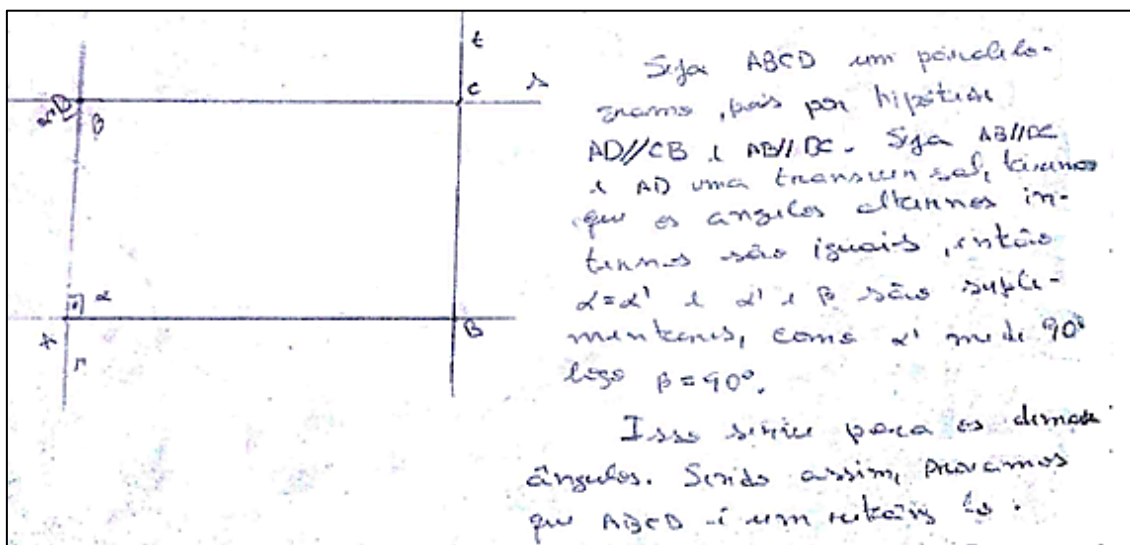 t
C
s
α'
D
β
α
A
B
r
Seja ABCD um paralelo-
gramo, pois por hipótese
AD//CB e AB//DC. Seja AB//DC
e AD uma transversal, temos
que os angulos alternos in-
ternos são iguais, então
α=α' e α' e β são suple-
mentares, como α' mede 90º
logo β=90º.
Isso serve para os demais
ângulos. Sendo assim, provamos
que ABCD é um retângulo.